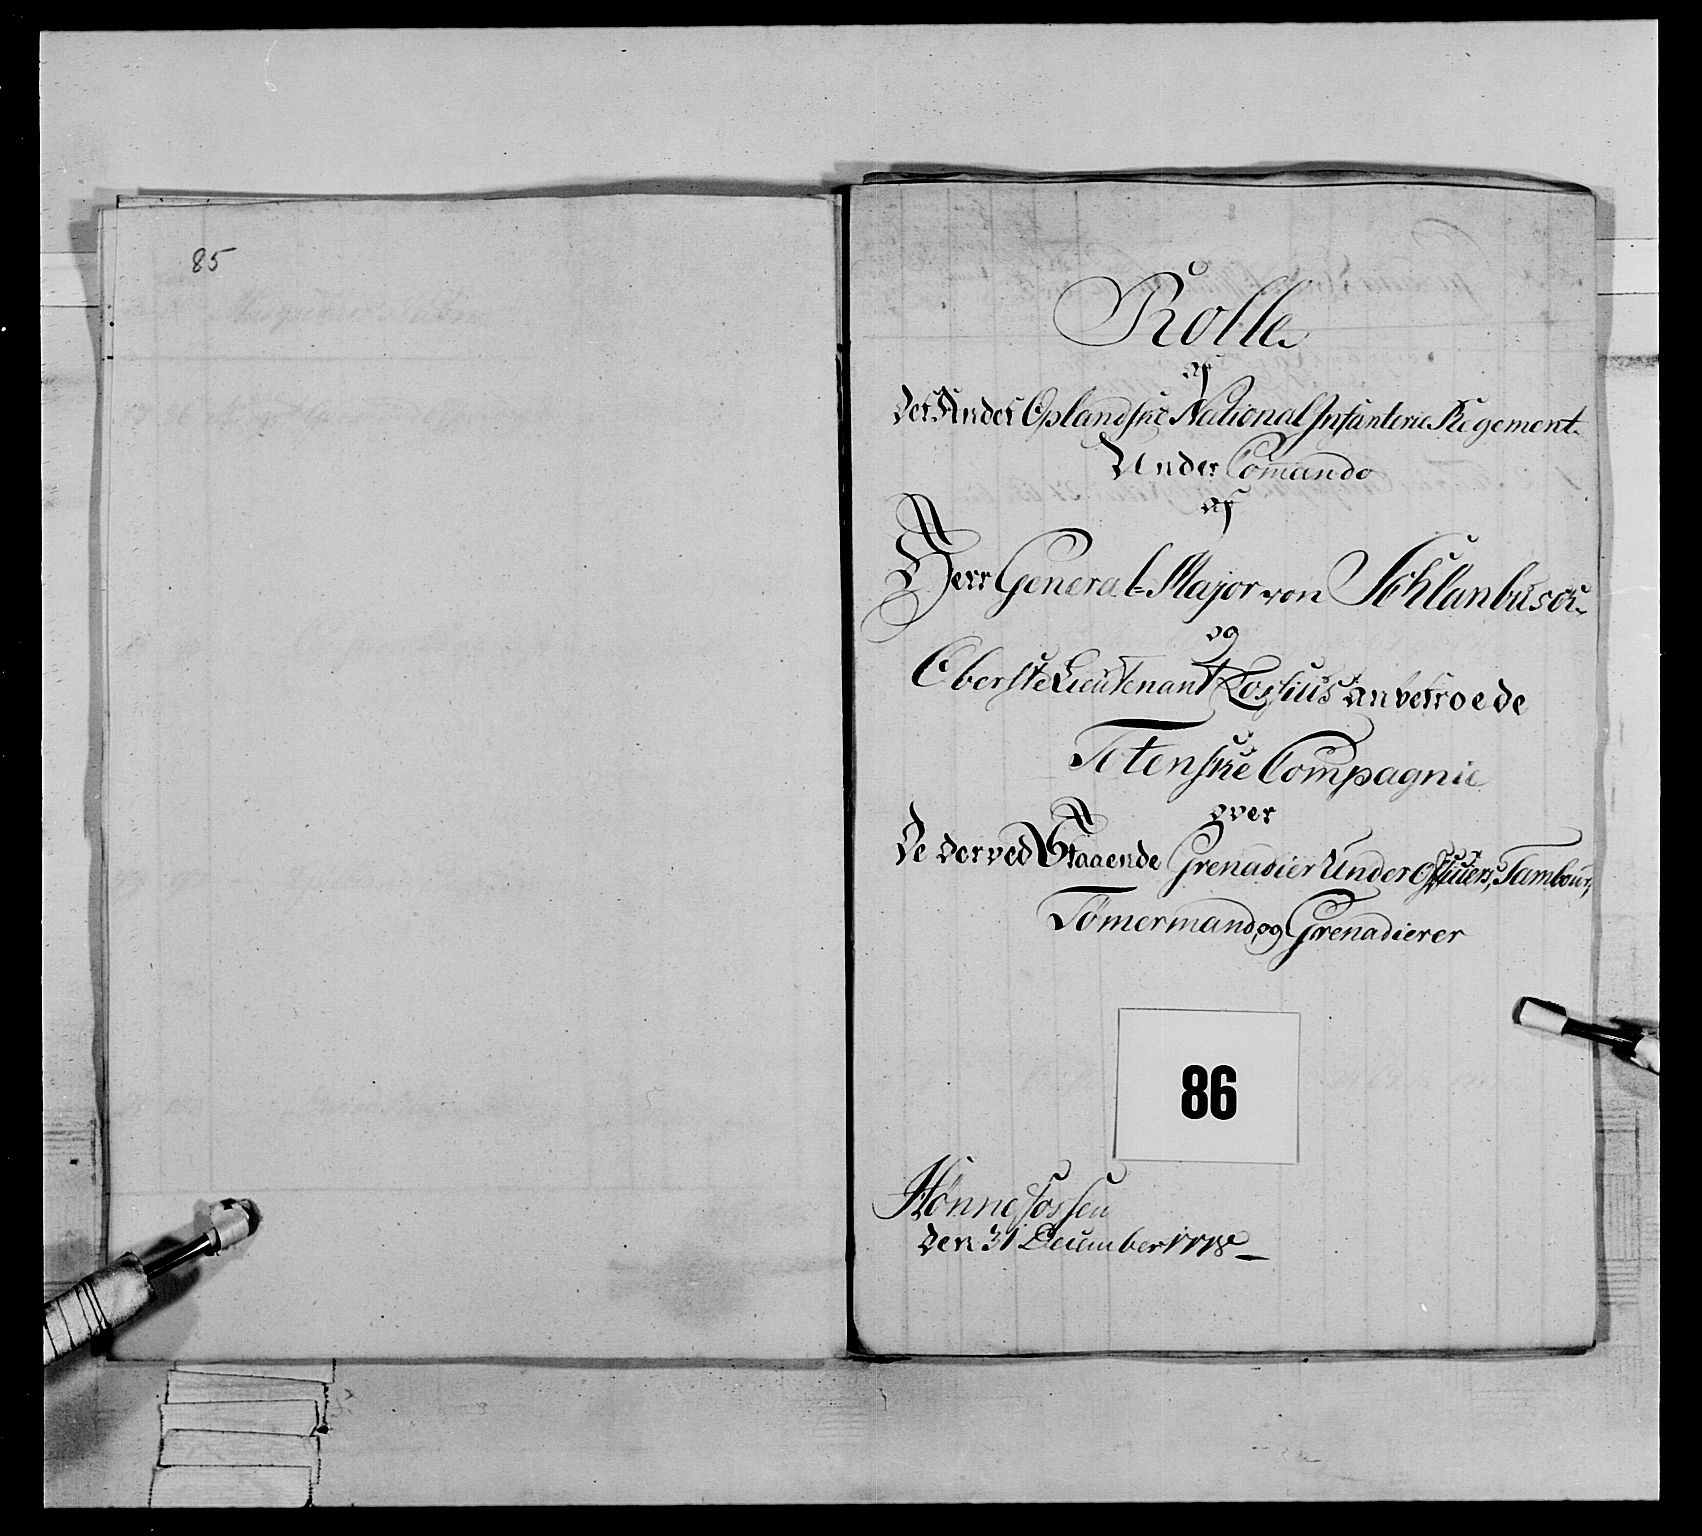 85
Rolle
af
Det Andet Oplandske National Infanterie Regement
Under Comando
af
Herr General-Major von Schlanbusch
og
Oberste Lieutenant Lossius anbetroede
Totenske Compagnie
over
De derved Staaende Grenadier Under Officiers, Tambour,
Tömermand, og Grenadierer
86
Hönnefossen
Den 31 December 1778